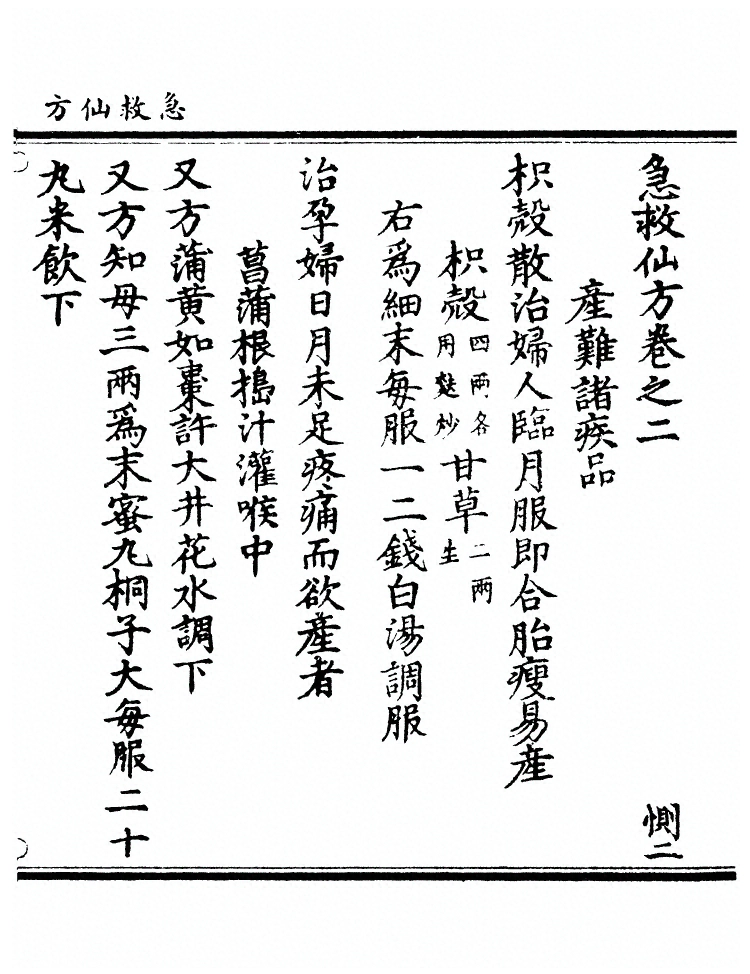 急救仙方
急救仙方卷之二 惻二
產難諸疾品
枳殼散治婦人臨月服即合胎瘦易產
枳殼四兩各用麩炒甘草二兩生
右爲細末每服一二錢白湯調服
治孕婦日月未足疼痛而欲產者
菖蒲根搗汁灌喉中
又方蒲黃如棗許大井花水調下
又方知母三兩爲末蜜丸桐子大每服二十
丸米飲下